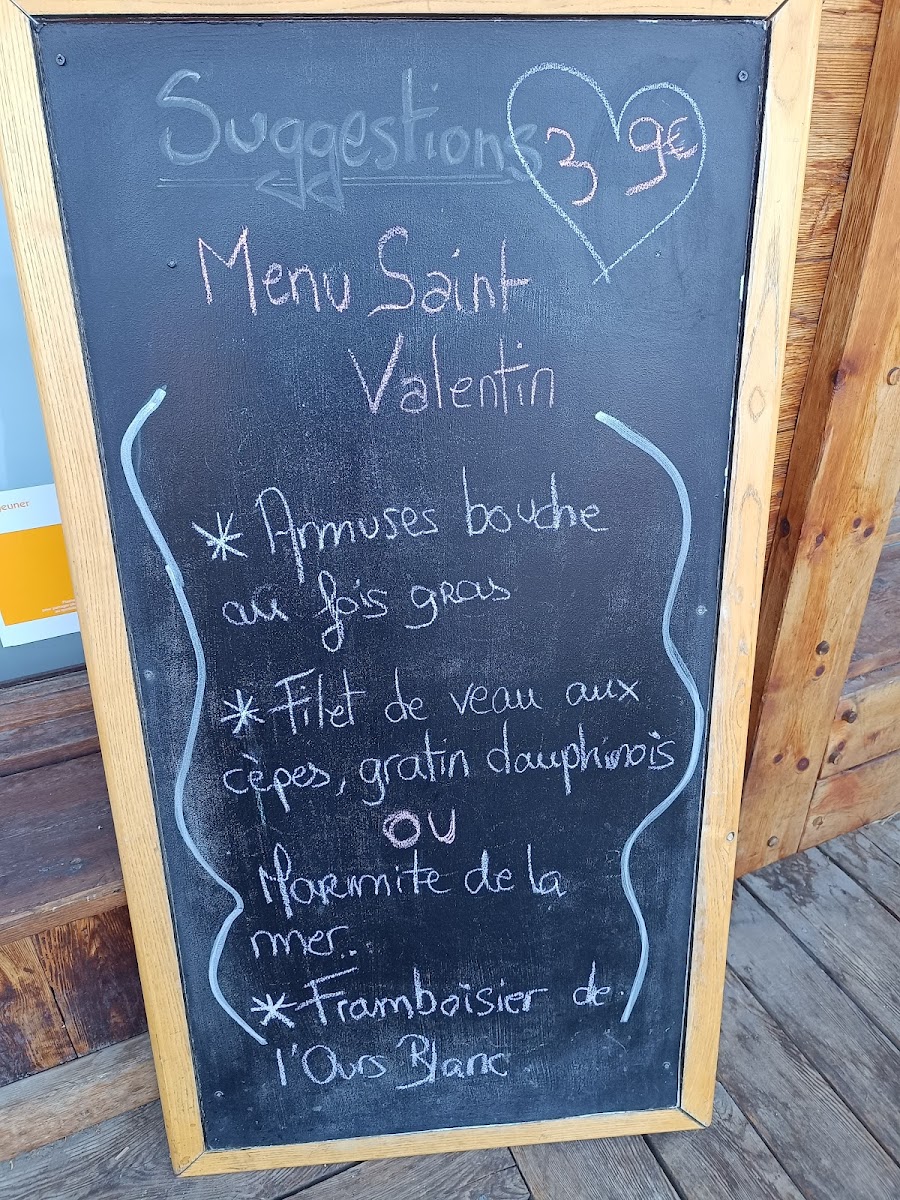 Suggestions
39€
Menu Saint
Valentin
* Amuses bouche
au fois gras
* Filet de veau aux
cèpes, gratin dauphinois
OU
Marmite de la
mer.
* Framboisier de
l'Ours Blanc
jeuner